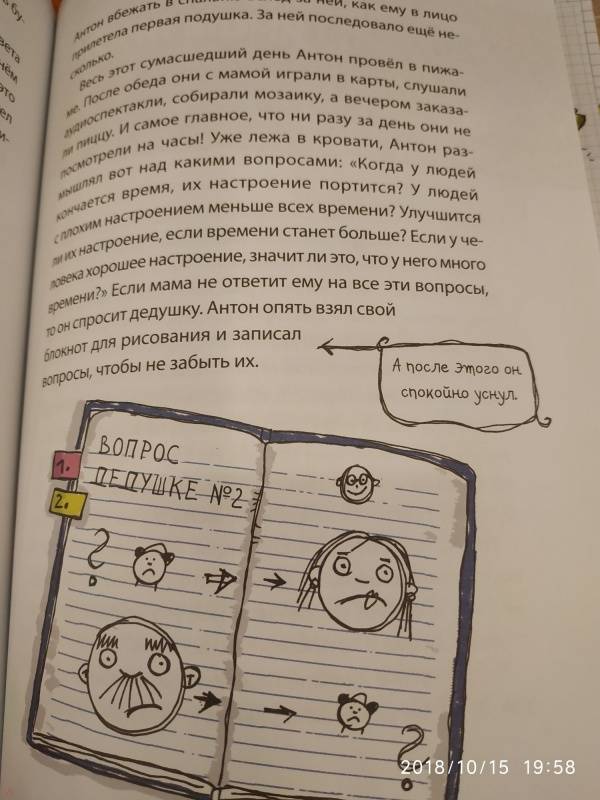 Антон вбежать в
за ней, как ему в лицо
прилетела первая подушка. За ней последовало ещё не-
сколько.
Весь этот сумасшедший день Антон провёл в пижа-
ме. После обеда они с мамой играли в карты, слушали
аудиоспектакли, собирали мозаику, а вечером заказа-
ли пиццу. И самое главное, что ни разу за день они не
посмотрели на часы! Уже лежа в кровати, Антон раз-
мышлял вот над какими вопросами: «Когда у людей
кончается время, их настроение портится? У людей
с плохим настроением меньше всех времени? Улучшится
ли их настроение, если времени станет больше? Если у че-
ловека хорошее настроение, значит ли это, что у него много
времени?» Если мама не ответит ему на все эти вопросы,
то он спросит дедушку. Антон опять взял свой
блокнот для рисования и записал
вопросы, чтобы не забыть их.
А после этого он
спокойно уснул.
1.
2.
ВОПРОС
ДЕДУШКЕ №2
?
?
2018/10/15 19:58